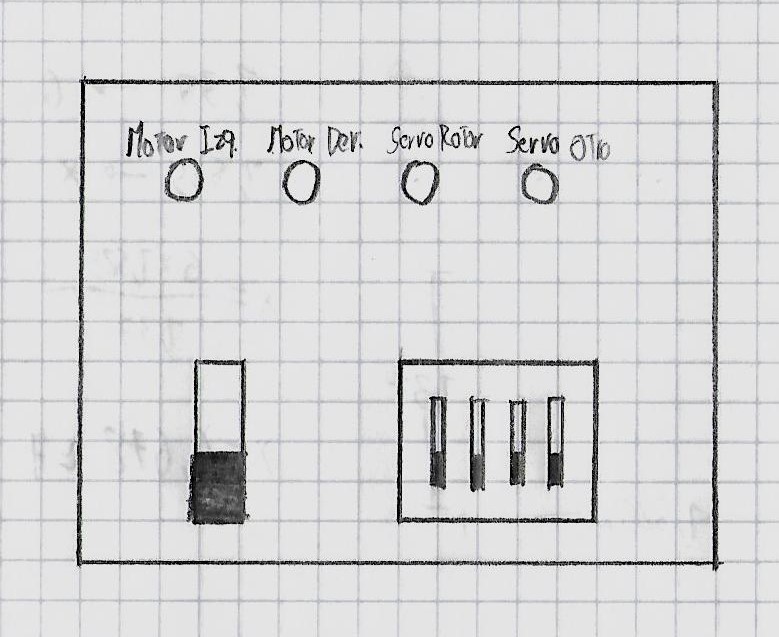 Motor Izq. Motor Der. Servo Rotor Servo Otro